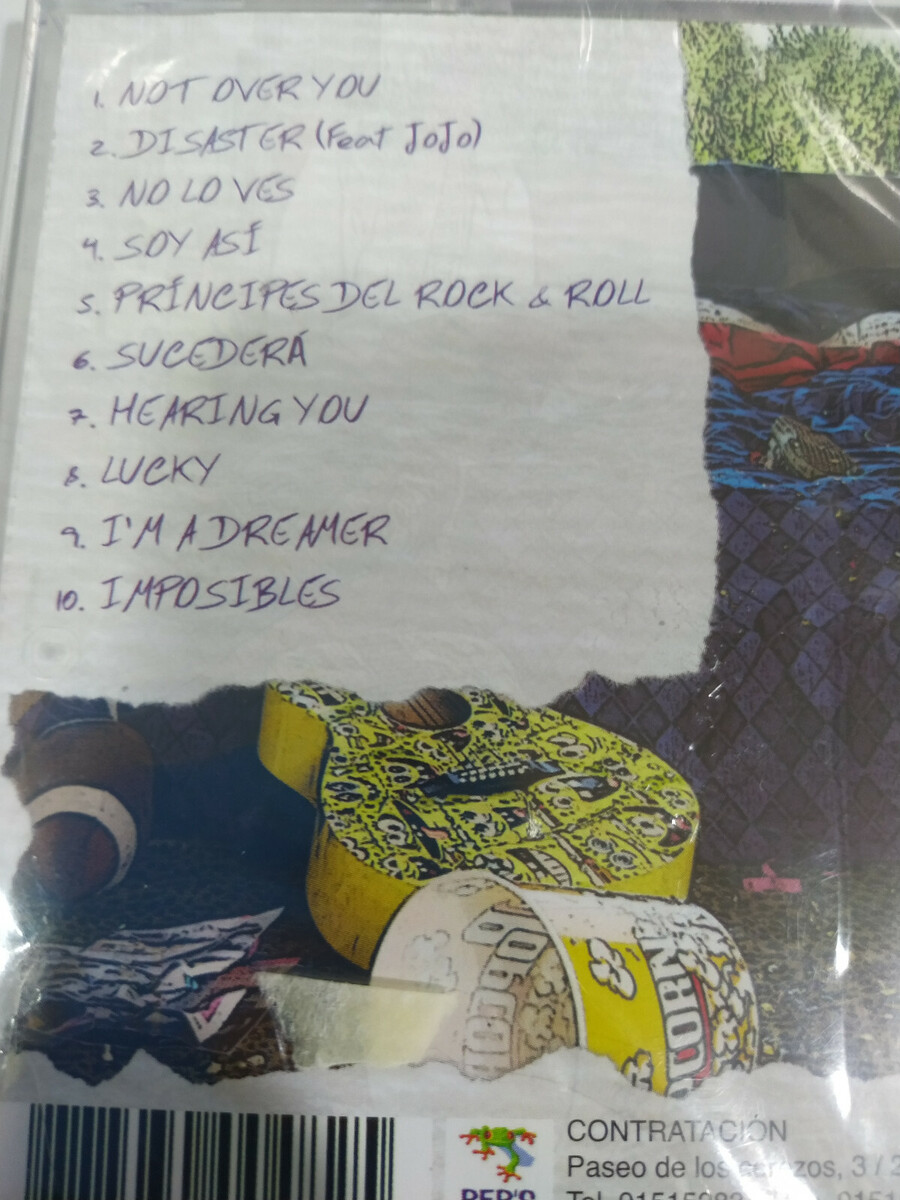 1. NOT OVER YOU
2. DISASTER (Feat JoJo)
3. NO LO VES
4. SOY ASÍ
5. PRÍNCIPES DEL ROCK & ROLL
6. SUCEDERÁ
7. HEARING YOU
8. LUCKY
9. I'M A DREAMER
10. IMPOSIBLES
CONTRATACIÓN
Paseo de los cerezos, 3 / 2